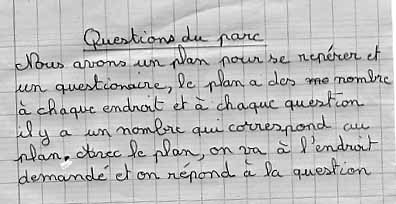 Questions du parc
Nous avons un plan pour se repérer et
un questionaire, le plan a des nombre
à chaque endroit et à chaque question
il y a un nombre qui correspond au
plan. Avec le plan, on va à l'endroit
demandé et on répond à la question